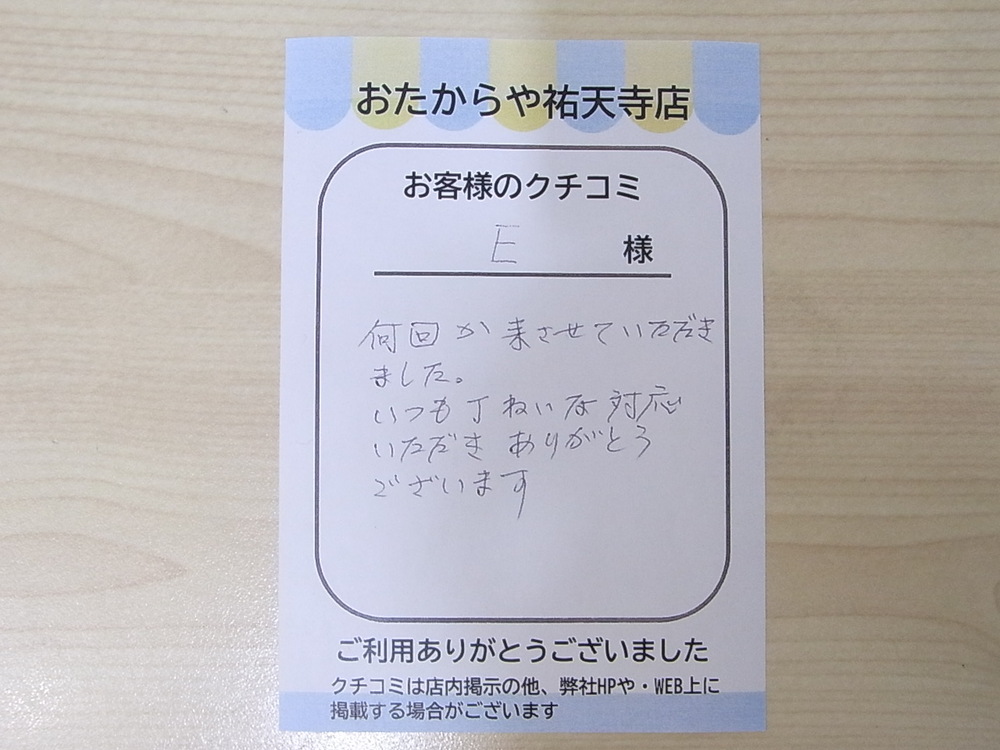 おたからや祐天寺店
お客様のクチコミ
E 様
何回か来させていただき
ました。
いつも丁ねいな対応
いただき ありがとう
ございます
ご利用ありがとうございました
クチコミは店内掲示の他、弊社HPや・WEB上に
掲載する場合がございます